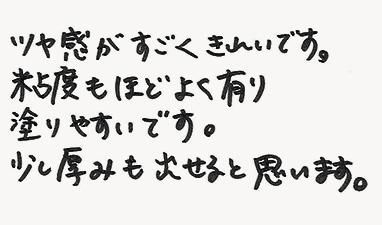 ツヤ感がすごくきれいです。
粘度もほどよく有り
塗りやすいです。
少し厚みも出せると思います。